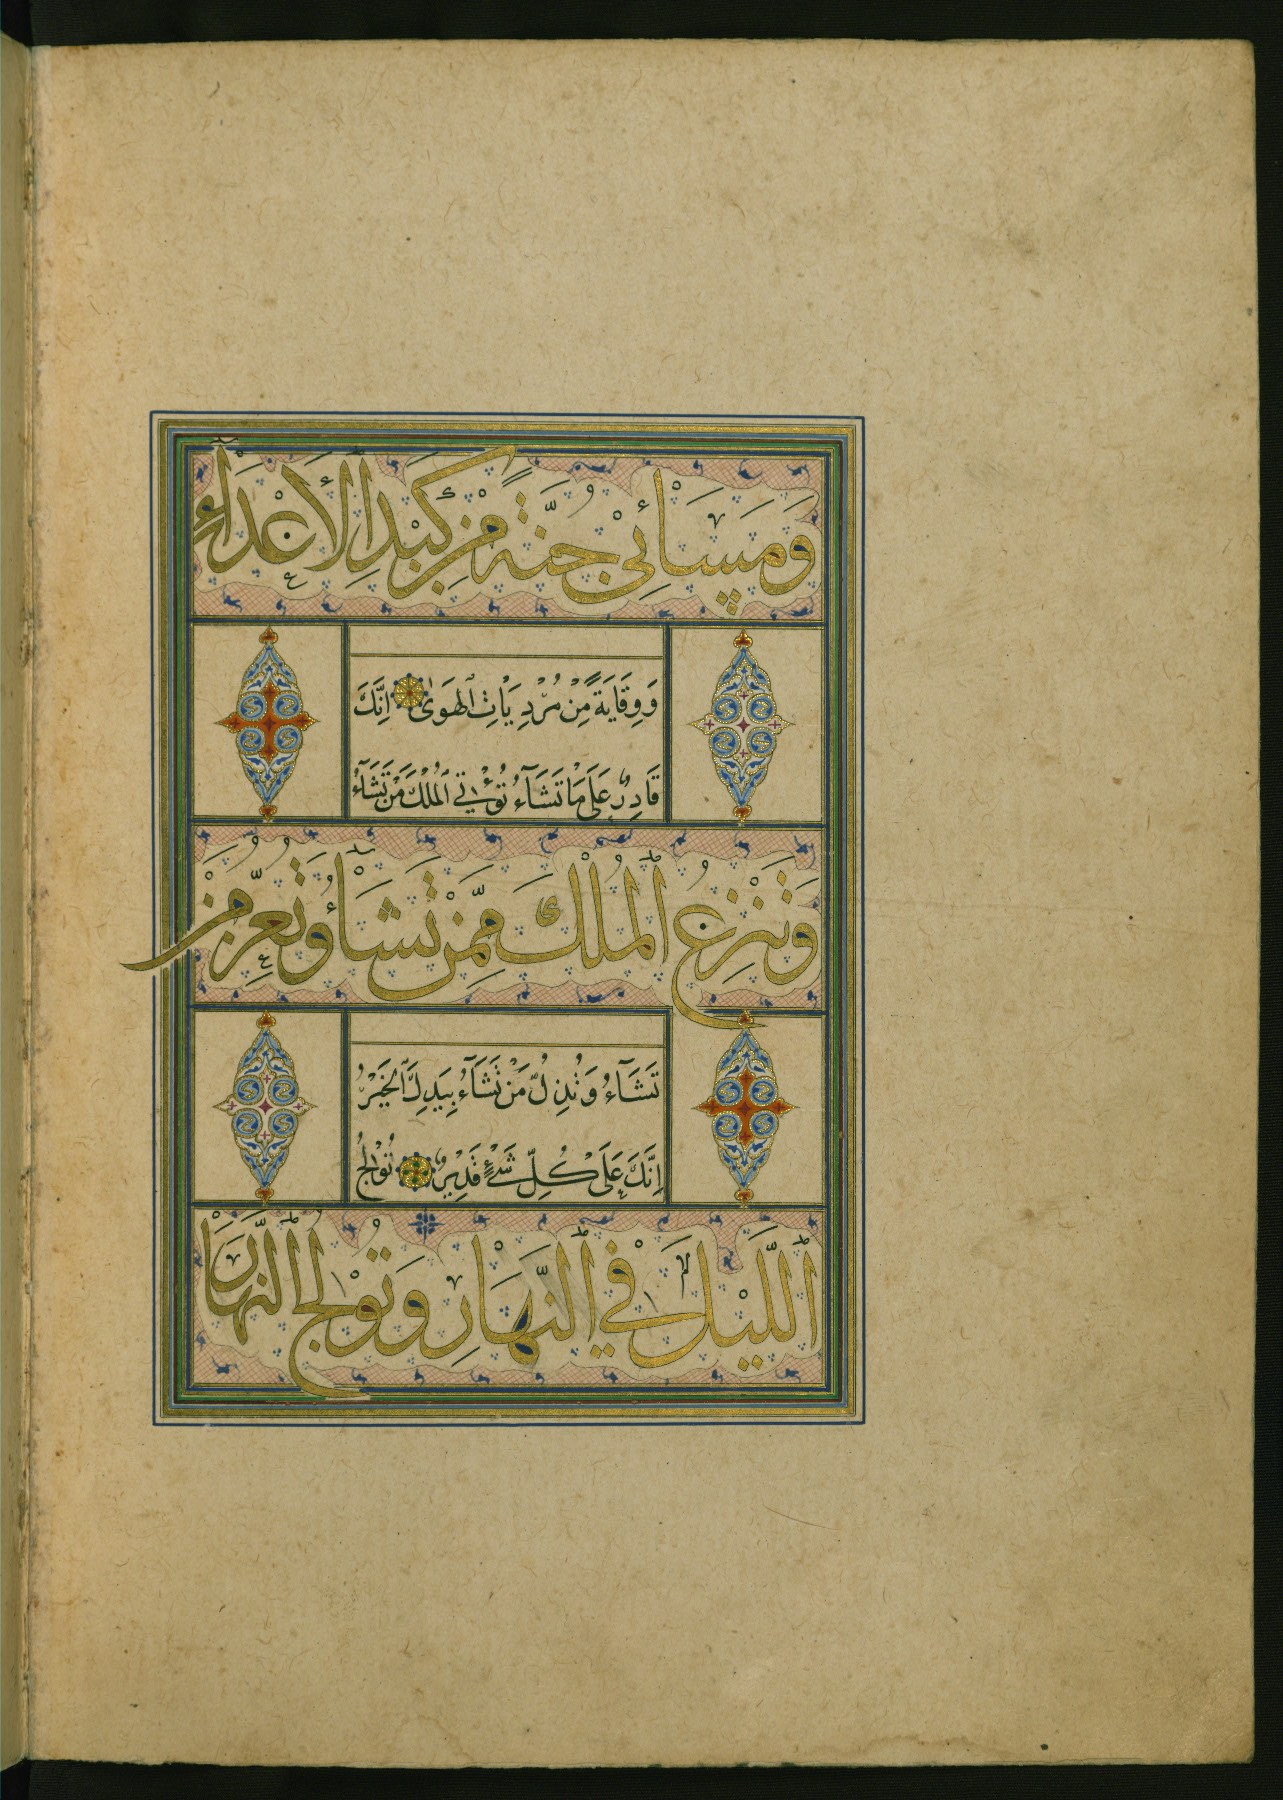 وَمَسَائِيْ جُنَّةً مِنْ كَيْدِ الْأَعْدَآءِ
وَوِقَايَةً مِنْ مُرْدِيَاتِ الْهَوٰى اِنَّكَ
قَادِرٌ عَلَى مَا تَشَآءُ تُؤْتِي الْمُلْكَ مَنْ تَشَآءُ
وَتَنْزِعُ الْمُلْكَ مِمَّنْ تَشَآءُ وَتُعِزُّ مَنْ
تَشَآءُ وَتُذِلُّ مَنْ تَشَآءُ بِيَدِكَ الْخَيْرُ
اِنَّكَ عَلَى كُلِّ شَيْءٍ قَدِيْرٌ تُوْلِجُ
اللَّيْلَ فِي النَّهَارِ وَتُوْلِجُ النَّهَارَ